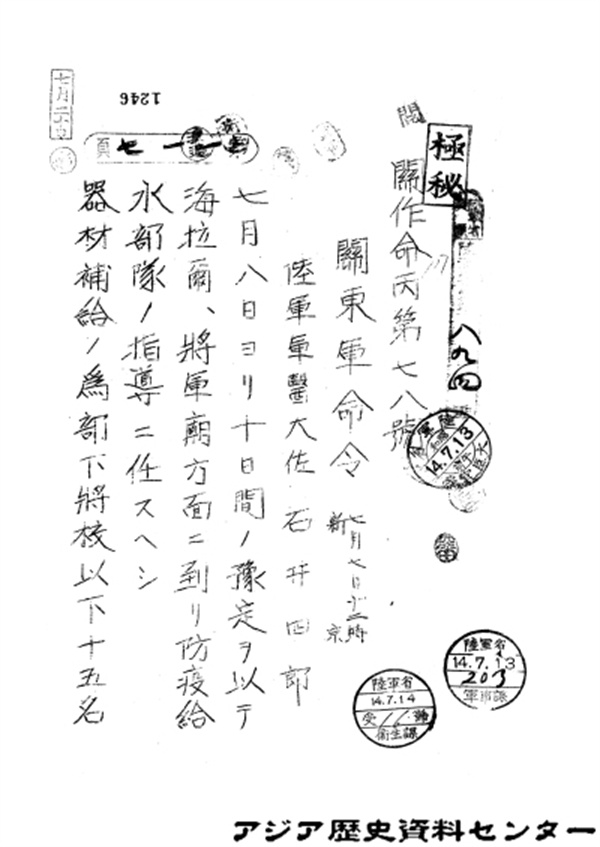 極秘
關作命丙第七八號
關東軍命令
七月七日十二時
新京
陸軍軍醫大佐 石井四郎
七月八日ヨリ十日間ノ豫定ヲ以テ
海拉爾、將軍廟方面ニ到リ防疫給
水部隊ノ指導ニ任スヘシ
器材補給ノ爲部下將校以下十五名
八九四
14.7.13
陸軍省
14.7.13
203
軍事課
陸軍省
14.7.14
衛生課
1246
アジア歴史資料センター